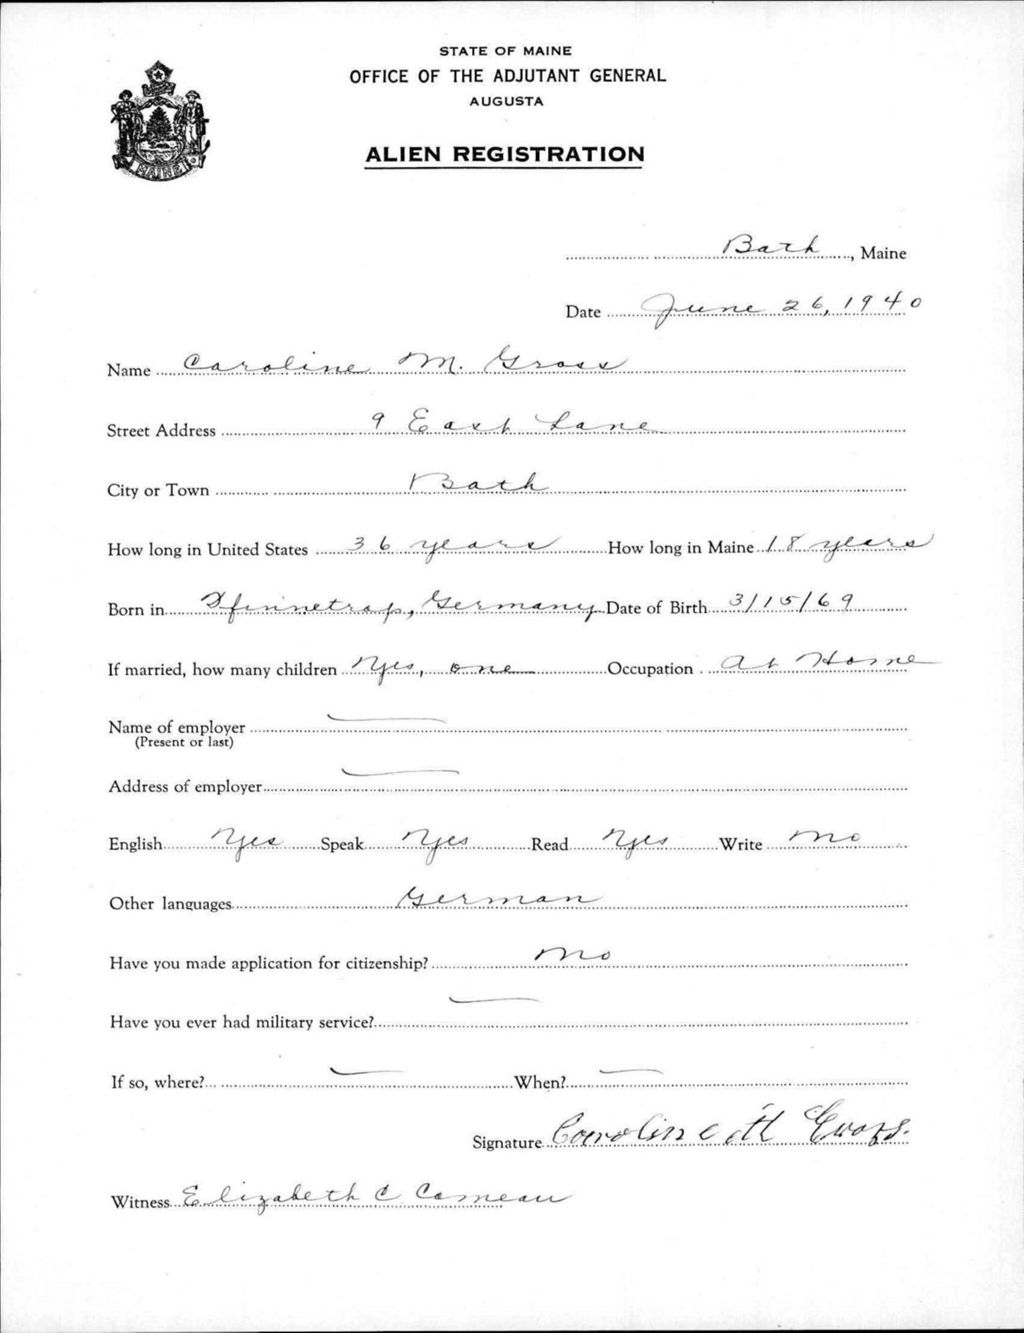 STATE OF MAINE
OFFICE OF THE ADJUTANT GENERAL
AUGUSTA
ALIEN REGISTRATION
MAINE
Bath, Maine
Date June 26, 1940
Name Caroline M. Gross
Street Address 9 East Lane
City or Town Bath
How long in United States 36 years How long in Maine 18 years
Born in Germany Date of Birth 3/15/69
If married, how many children Yes, one Occupation At Home
Name of employer
(Present or last)
Address of employer
English Yes Speak Yes Read Yes Write No
Other languages German
Have you made application for citizenship? No
Have you ever had military service?
If so, where? When?
Signature Caroline M Gross.
Witness Elizabeth C Comeau